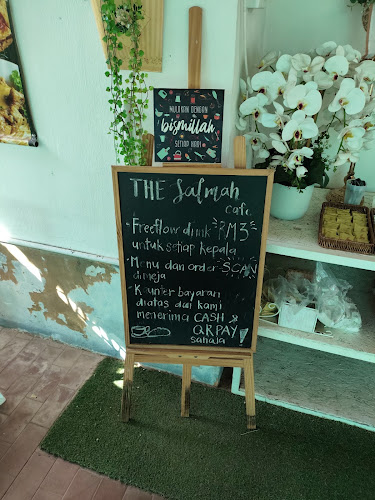 MULAKAN DENGAN
bismillah
SETIAP HARI
THE Salmah
cafe
- Freeflow drink RM3
untuk setiap kepala
- Menu dan order SCAN
dimeja
- Kaunter bayaran
diatas dan kami
menerima CASH &
QRPAY
sahaja !